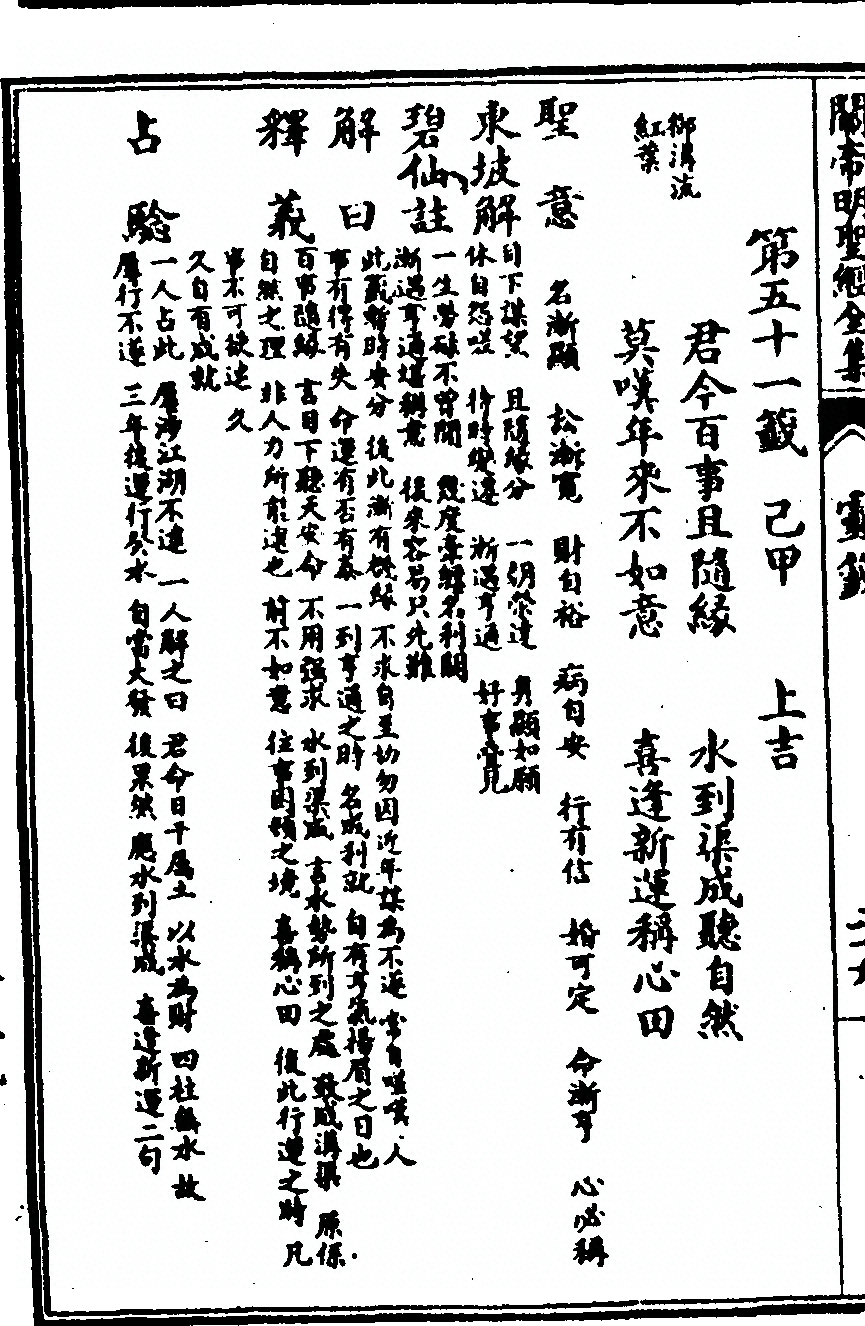 關帝明聖經全集
靈籤
第五十一籤　己甲　上吉
御溝流
紅葉
君今百事且隨緣　水到渠成聽自然
莫嘆年來不如意　喜逢新運稱心田
聖意　名漸顯　訟漸寬　財自裕　病自安　行有信　婚可定　命漸亨　心必稱
東坡解　目下謀望　且隨緣分　一朝榮達　身顯如願
休自怨嗟　待時變遷　漸遇亨通　好事疊見
碧仙註　一生勞碌不曾閒　幾度牽纏名利關
漸遇亨通堪稱意　後來容易只先難
解曰　此籤暫時安分　後此漸有機緣　不求自至　切勿因近年謀為不遂　常自嗟嘆　人
事有得有失　命運有否有泰　一到亨通之時　名成利就　自有亨氣揚眉之日也
釋義　百事隨緣　言目下聽天安命　不用強求　水到渠成　言水勢所到之處　致成溝渠　原係
自然之理　非人力所能速也　前不如意　往事困頓之境　喜稱心田　後此行運之時　凡
事不可欲速　久
久自有成就
占驗　一人占此　屢涉江湖不遂　一人解之曰　君命日干屬土　以水為財　四柱無水　故
屢行不遂　三年後運行癸水　自當大發　後果然　應水到渠成　喜逢新運二句